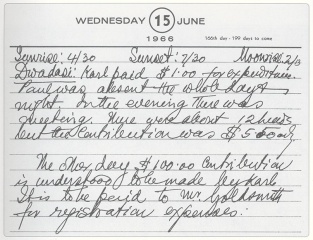 WEDNESDAY 15 JUNE
1966
166th day - 199 days to come
Sunrise: 4/30 Sunset: 7/30 Moonrise: 2/3
Dwadasi: Karl paid $1.00 for expenditure.
Paul was absent the whole day &
night. In the evening there was
meeting. There were about 12 heads
but the Contribution was $5.00 only.
The other day $100.00 Contribution
is understood to be made by Karl.
It is to be paid to Mr. Goldsmith
for registration expenses.